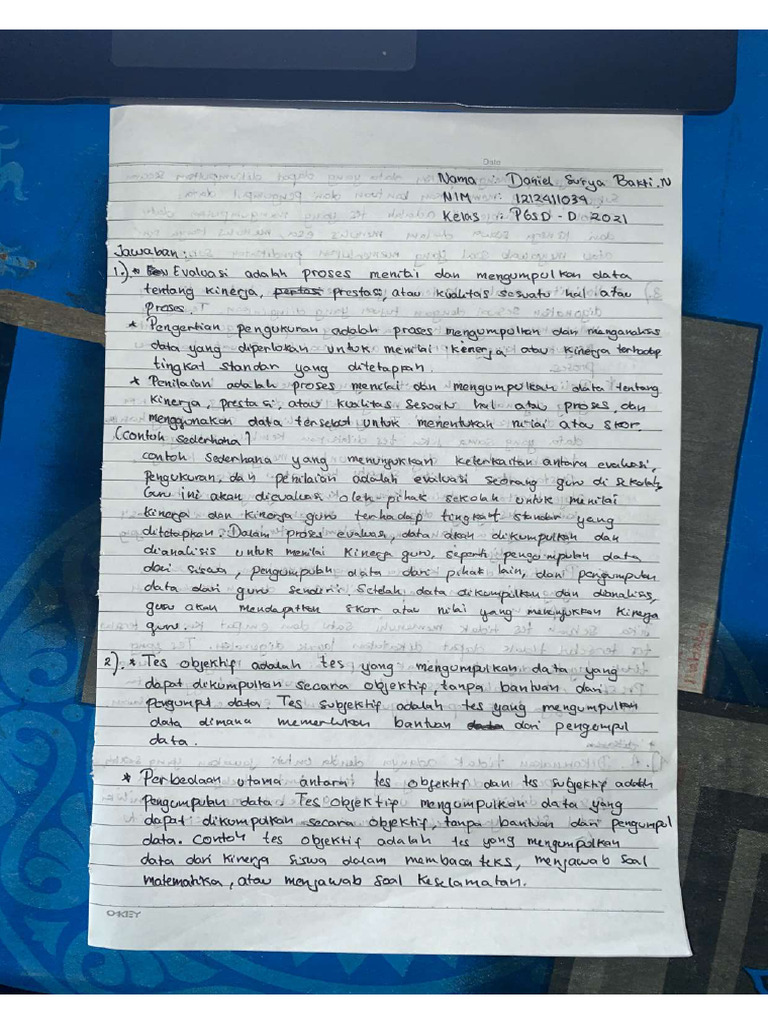 Date
Nama : Daniel Surya Bakti.N
NIM : 1212411034
Kelas : PGSD - D 2021
Jawaban :
1.) * Evaluasi adalah proses menilai dan mengumpulkan data
tentang kinerja, prestasi, atau kualitas sesuatu hal atau
proses.
* Pengertian pengukuran adalah proses mengumpulkan dan menganalisis
data yang diperlukan untuk menilai kenerja atau kinerja terhadap
tingkat standar yang ditetapkan.
* Penilaian adalah proses menilai dan mengumpulkan data tentang
kinerja, prestasi, atau kualitas sesuatu hal atau proses, dan
menggunakan data tersebut untuk menentukan nilai atau skor.
[Contoh sederhana]
contoh sederhana yang menunjukkan keterkaitan antara evaluasi,
pengukuran, dan penilaian adalah evaluasi seorang guru di sekolah.
Guru ini akan dievaluasi oleh pihak sekolah untuk menilai
kinerja dan kinerja guru terhadap tingkat standar yang
ditetapkan. Dalam proses evaluasi, data akan dikumpulkan dan
dianalisis untuk menilai kinerja guru, seperti pengumpulan data
dari siswa, pengumpulan data dari pihak lain, dan pengumpulan
data dari guru sendiri. Setelah data dikumpulkan dan dianalisis,
guru akan mendapatkan skor atau nilai yang menunjukkan kinerja
guru.
2). * Tes objektif adalah tes yang mengumpulkan data yang
dapat dikumpulkan secara objektif, tanpa bantuan dari
pengumpul data. Tes subjektif adalah tes yang mengumpulkan
data dimana memerlukan bantuan dari pengumpul
data.
* Perbedaan utama antara tes objektif dan tes subjektif adalah
pengumpulan data. Tes objektif mengumpulkan data yang
dapat dikumpulkan secara objektif, tanpa bantuan dari pengumpul
data. Contoh tes objektif adalah tes yang mengumpulkan
data dari kinerja siswa dalam membaca teks, menjawab soal
matematika, atau menjawab soal keselamatan.
O-KEY